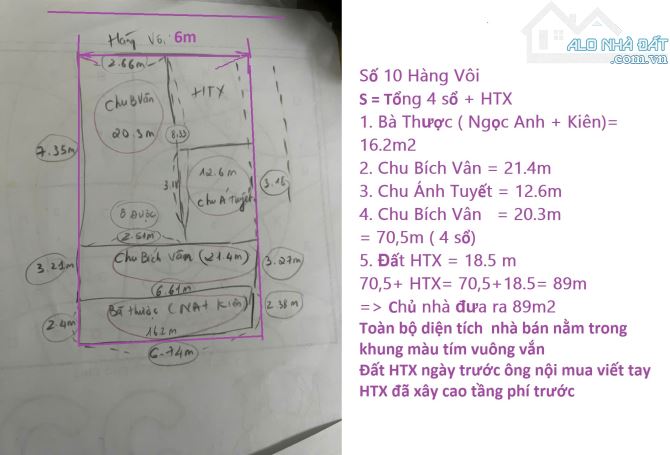 Hàng Vôi 6m
2.66m
HTX
Chu B Vân
20.3m
8.33
7.35m
12.6m
chu Á Tuyết
3.18
2.51m
Chu Bích Vân (21.4m)
3.21m
3.27m
6.61m
Bà Thược (NA + Kiên)
16.2m
2.4m
2.38m
6.74m
ALO NHÀ ĐẤT
.com.vn
Số 10 Hàng Vôi
S = Tổng 4 sổ + HTX
1. Bà Thược ( Ngọc Anh + Kiên)=
16.2m2
2. Chu Bích Vân = 21.4m
3. Chu Ánh Tuyết = 12.6m
4. Chu Bích Vân = 20.3m
= 70,5m ( 4 sổ)
5. Đất HTX = 18.5 m
70,5+ HTX= 70,5+18.5= 89m
=> Chủ nhà đưa ra 89m2
Toàn bộ diện tích nhà bán nằm trong
khung màu tím vuông vắn
Đất HTX ngày trước ông nội mua viết tay
HTX đã xây cao tầng phí trước